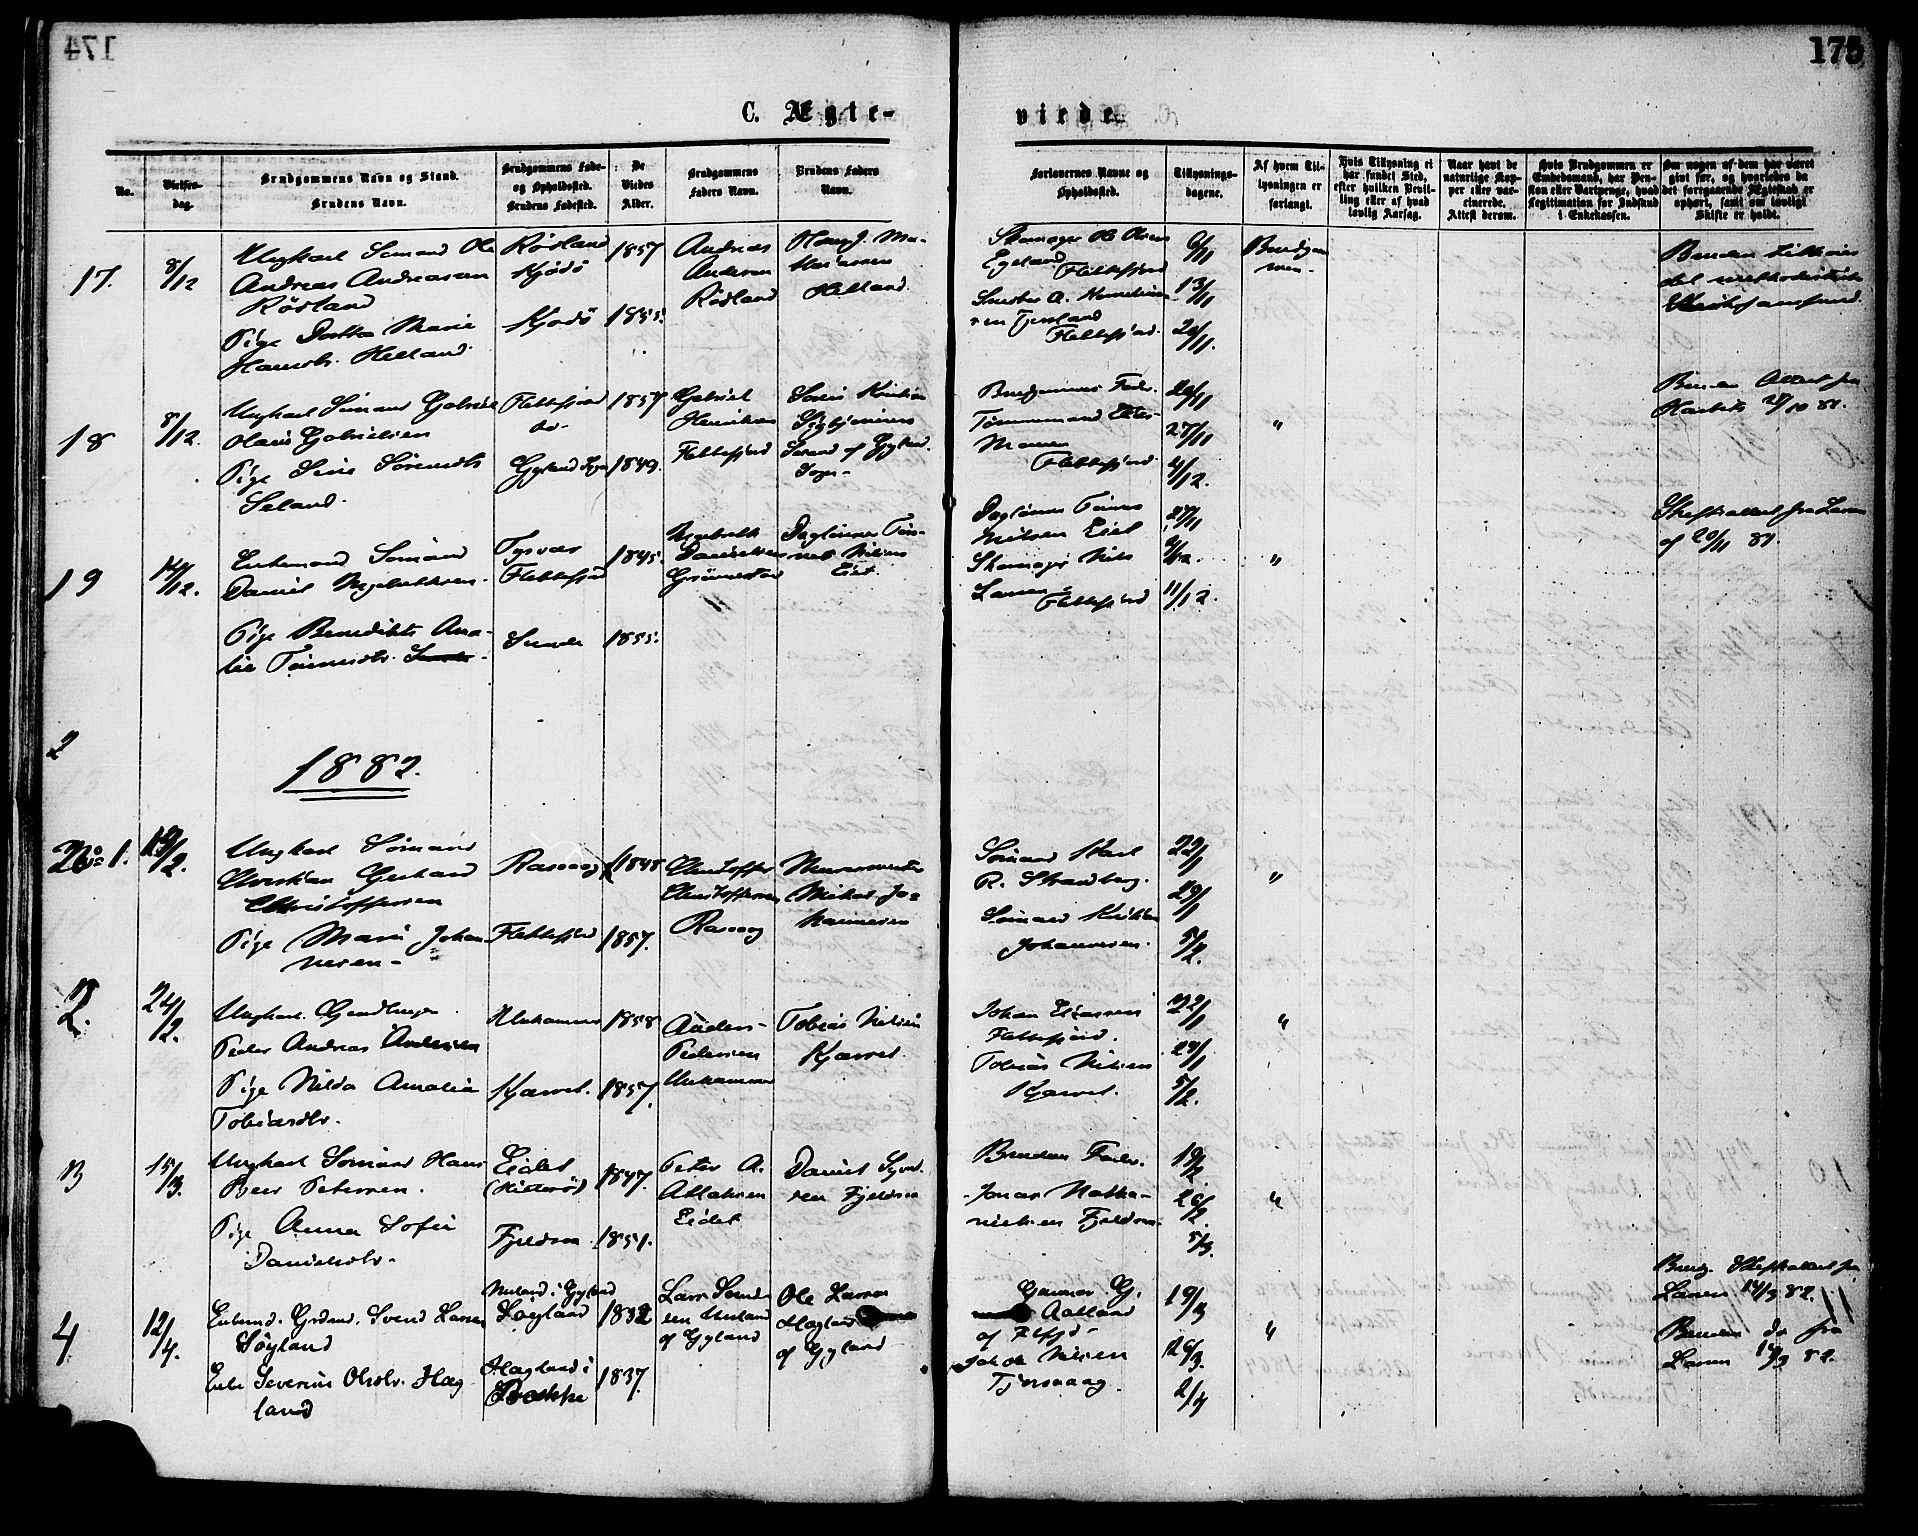 175
C. Ægte-
viede
No.
Vielses-
dag.
Brudgommens Navn og Stand.
Brudens Navn.
Brudgommens Føde-
og Opholdssted.
Brudens Fødested.
De
Viedes
Alder.
Brudgommens
Faders Navn.
Brudens Faders
Navn.
Forlovernes Navne og
Opholdssted.
Tillysnings-
dagene.
Af hvem Til-
lysningen er
forlangt.
Hvis Tillysning ei
har fundet Sted,
efter hvilken Bevil-
ling eller af hvad
lovlig Aarsag.
Naar havt de
naturlige Kop-
per eller vac-
cinerede.
Attest derom.
Hvis Brudgommen er
Embedsmand, har Pen-
sion eller Vartpenge, hvad
Legitimation for Indskud
i Enkekassen.
Om nogen af dem har været
gift før, og hvorledes da
det foregaaende Ægteskab er
ophørt, samt om lovligt
Skifte er holdt.
17.
8/12
Ungkarl Sømand Ole
Andreas Andreassen
Rødland
Pige Dortha Marie
Hansdtr. Helland.
Rødland
Kjødø
Kjødø
1857
1855.
Andreas
Andersen
Rødland
Hans J. Ma-
thiasen
Helland.
Skomager Ole Olsen
Egeland
Flekkefjord
A. Kornelius-
sen Tjorsland
Flekkefjord.
6/11
13/11
20/11.
Brudgom-
men
Bruden tilhører
det methodistiske
18
8/12.
Ungkarl Sømand Gabriel
Olaus Gabrielsen
Pige Sine Sørensdtr
Seland.
Flekkefjord
do.
Gyland Sogn
1857
1849.
Gabriel
Henriksen
Flekkefjord
Seland af Gyland
Sogn-
Brudgommens Fader.
Tømmermand
Flekkefjord
20/11
27/11
4/12.
"
Bruden Attest fra
19
14/12.
Enkemand Sømand
Daniel Ingebrethsen.
Pige Benedikte Ama-
lie Tønnesdtr.
Tysvær
Flekkefjord
Sunde
1845.
1855.
Ingebreth
Danielsen
Grønnestad
Dagløner Tøn-
nes Nilsen
Eiet.
Dagløner Tønnes
Nilsen Eiet
Skomager Nils
Larsen
Flekkefjord
27/11
4/12.
11/12.
"
Skifteattest fra Larsen
af 29/11 81.
2
1882.
No 1.
Ungkarl Sømand
Christian Gerhard
Christoffersen
Pige Marie Johan-
nesen-
Rasvaag
Flekkefjord
1848
1857.
Christoffer
Christoffersen
Rasvaag
Murermester
Mikal Jo-
hannesen
Sømand Karl
R. Strandberg.
Sømand Kristian
Johannesen.
22/1
29/1
5/2.
"
2.
24/2.
Ungkarl Handlunger
Peder Andreas Andersen
Pige Nilda Amalia
Tobiasdtr.
Ulehammer
Kjørret.
1858
1857.
Anders-
Pedersen
Ulehammer
Tobias Nilsen
Kjørret.
Johan Eliassen
Flekkefjord.
Tobias Nilsen
Kjørret.
22/1
29/1
5/2.
"
3
15/3.
Ungkarl Sømand Hans
Beer Petersen.
Pige Anna Sofie
Danielsdtr.
Eidet
(Hitterø)
Fjeldsaa
1847.
1851.
Peter A.
Atlaksen
Eidet
Daniel Syvert-
sen Fjeldsaa
Brudens Fader.
Jonas Natha-
nielsen Fjeldsaa
19/2
26/2.
5/3.
"
4
12/4.
Enkemd. Grdmd. Svend Larsen
Søyland
Enke Severine Olsdtr. Hæg-
land
Nuland i Gyland
Søyland
Hægland i
Bakke
1832
1837.
Lars Svend-
sen Nuland
af Gyland
Ole Larsen
Hægland
af Gyland
Gunner G.
Aatland
af Flfjd-
Jakob Nilsen
Tjørsvaag.
19/3
26/3.
2/4
"
Brudg. Skifteattest fra
Larsen 14/3 82.
Bruden do fra
Larsen 14/3 82.